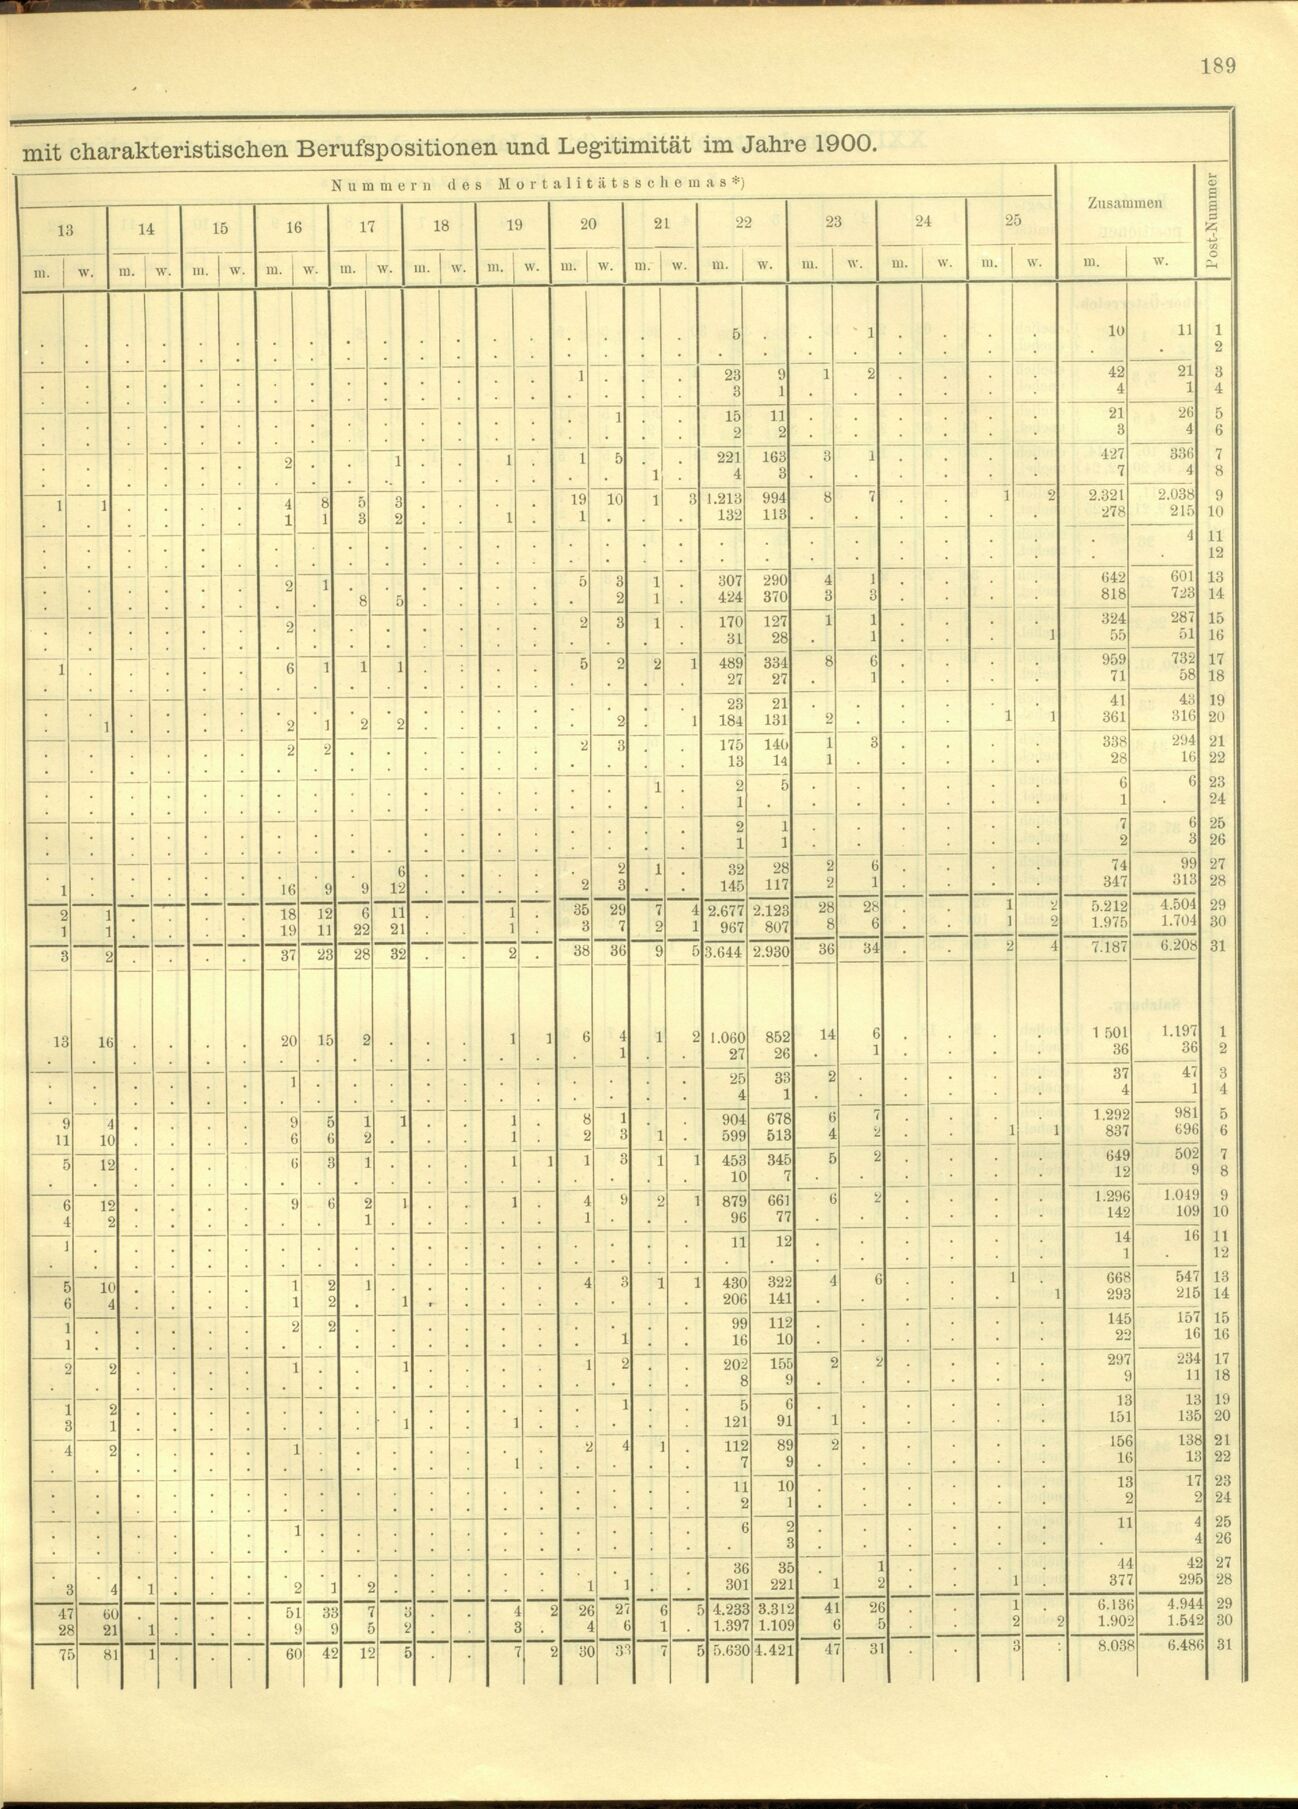 189
mit charakteristischen Berufspositionen und Legitimität im Jahre 1900.
Nummern des Mortalitätsschemas*)
Zusammen
Post-Nummer
13 14 15 16 17 18 19 20 21 22 23 24 25
m. w. m. w. m. w. m. w. m. w. m. w. m. w. m. w. m. w. m. w. m. w. m. w. m. w. m. w.
5 1 10 11 1
2
1 23 9 1 2 42 21 3
3 1 4 1 4
1 15 11 21 26 5
2 2 3 4 6
2 1 1 1 5 221 163 3 1 427 336 7
1 4 3 7 4 8
1 1 4 8 5 3 19 10 1 3 1.213 994 8 7 1 2 2.321 2.038 9
1 1 3 2 1 1 132 113 278 215 10
4 11
12
2 1 5 3 1 307 290 4 1 642 601 13
8 5 2 1 424 370 3 3 818 723 14
2 2 3 1 170 127 1 1 324 287 15
31 28 1 1 55 51 16
1 6 1 1 1 5 2 2 1 489 334 8 6 959 732 17
27 27 1 71 58 18
23 21 41 43 19
1 2 1 2 2 2 1 184 131 2 1 1 361 316 20
2 2 2 3 175 140 1 3 338 294 21
13 14 1 28 16 22
1 2 5 6 6 23
1 1 24
2 1 7 6 25
1 1 2 3 26
6 2 1 32 28 2 6 74 99 27
1 16 9 9 12 2 3 145 117 2 1 347 313 28
2 1 18 12 6 11 1 35 29 7 4 2.677 2.123 28 28 1 2 5.212 4.504 29
1 1 19 11 22 21 1 3 7 2 1 967 807 8 6 1 2 1.975 1.704 30
3 2 37 23 28 32 2 38 36 9 5 3.644 2.930 36 34 2 4 7.187 6.208 31
13 16 20 15 2 1 1 6 4 1 2 1.060 852 14 6 1 501 1.197 1
1 27 26 1 36 36 2
1 25 33 2 37 47 3
4 1 4 1 4
9 4 9 5 1 1 1 8 1 904 678 6 7 1.292 981 5
11 10 6 6 2 1 2 3 1 599 513 4 2 1 1 837 696 6
5 12 6 3 1 1 1 1 3 1 1 453 345 5 2 649 502 7
10 7 12 9 8
6 12 9 6 2 1 1 4 9 2 1 879 661 6 2 1.296 1.049 9
4 2 1 1 96 77 142 109 10
1 11 12 14 16 11
1 12
5 10 1 2 1 4 3 1 1 430 322 4 6 1 668 547 13
6 4 1 2 1 206 141 1 293 215 14
1 2 2 99 112 145 157 15
1 1 16 10 22 16 16
2 2 1 1 1 2 202 155 2 2 297 234 17
8 9 9 11 18
1 2 1 5 6 13 13 19
3 1 1 1 121 91 1 151 135 20
4 2 1 2 4 1 112 89 2 156 138 21
1 7 9 16 13 22
11 10 13 17 23
2 1 2 2 24
1 6 2 11 4 25
3 4 26
36 35 1 44 42 27
3 4 1 2 1 2 1 1 301 221 1 2 1 377 295 28
47 60 51 33 7 3 4 2 26 27 6 5 4.233 3.312 41 26 1 6.136 4.944 29
28 21 1 9 9 5 2 3 4 6 1 1.397 1.109 6 5 2 2 1.902 1.542 30
75 81 1 60 42 12 5 7 2 30 33 7 5 5.630 4.421 47 31 3 8.038 6.486 31